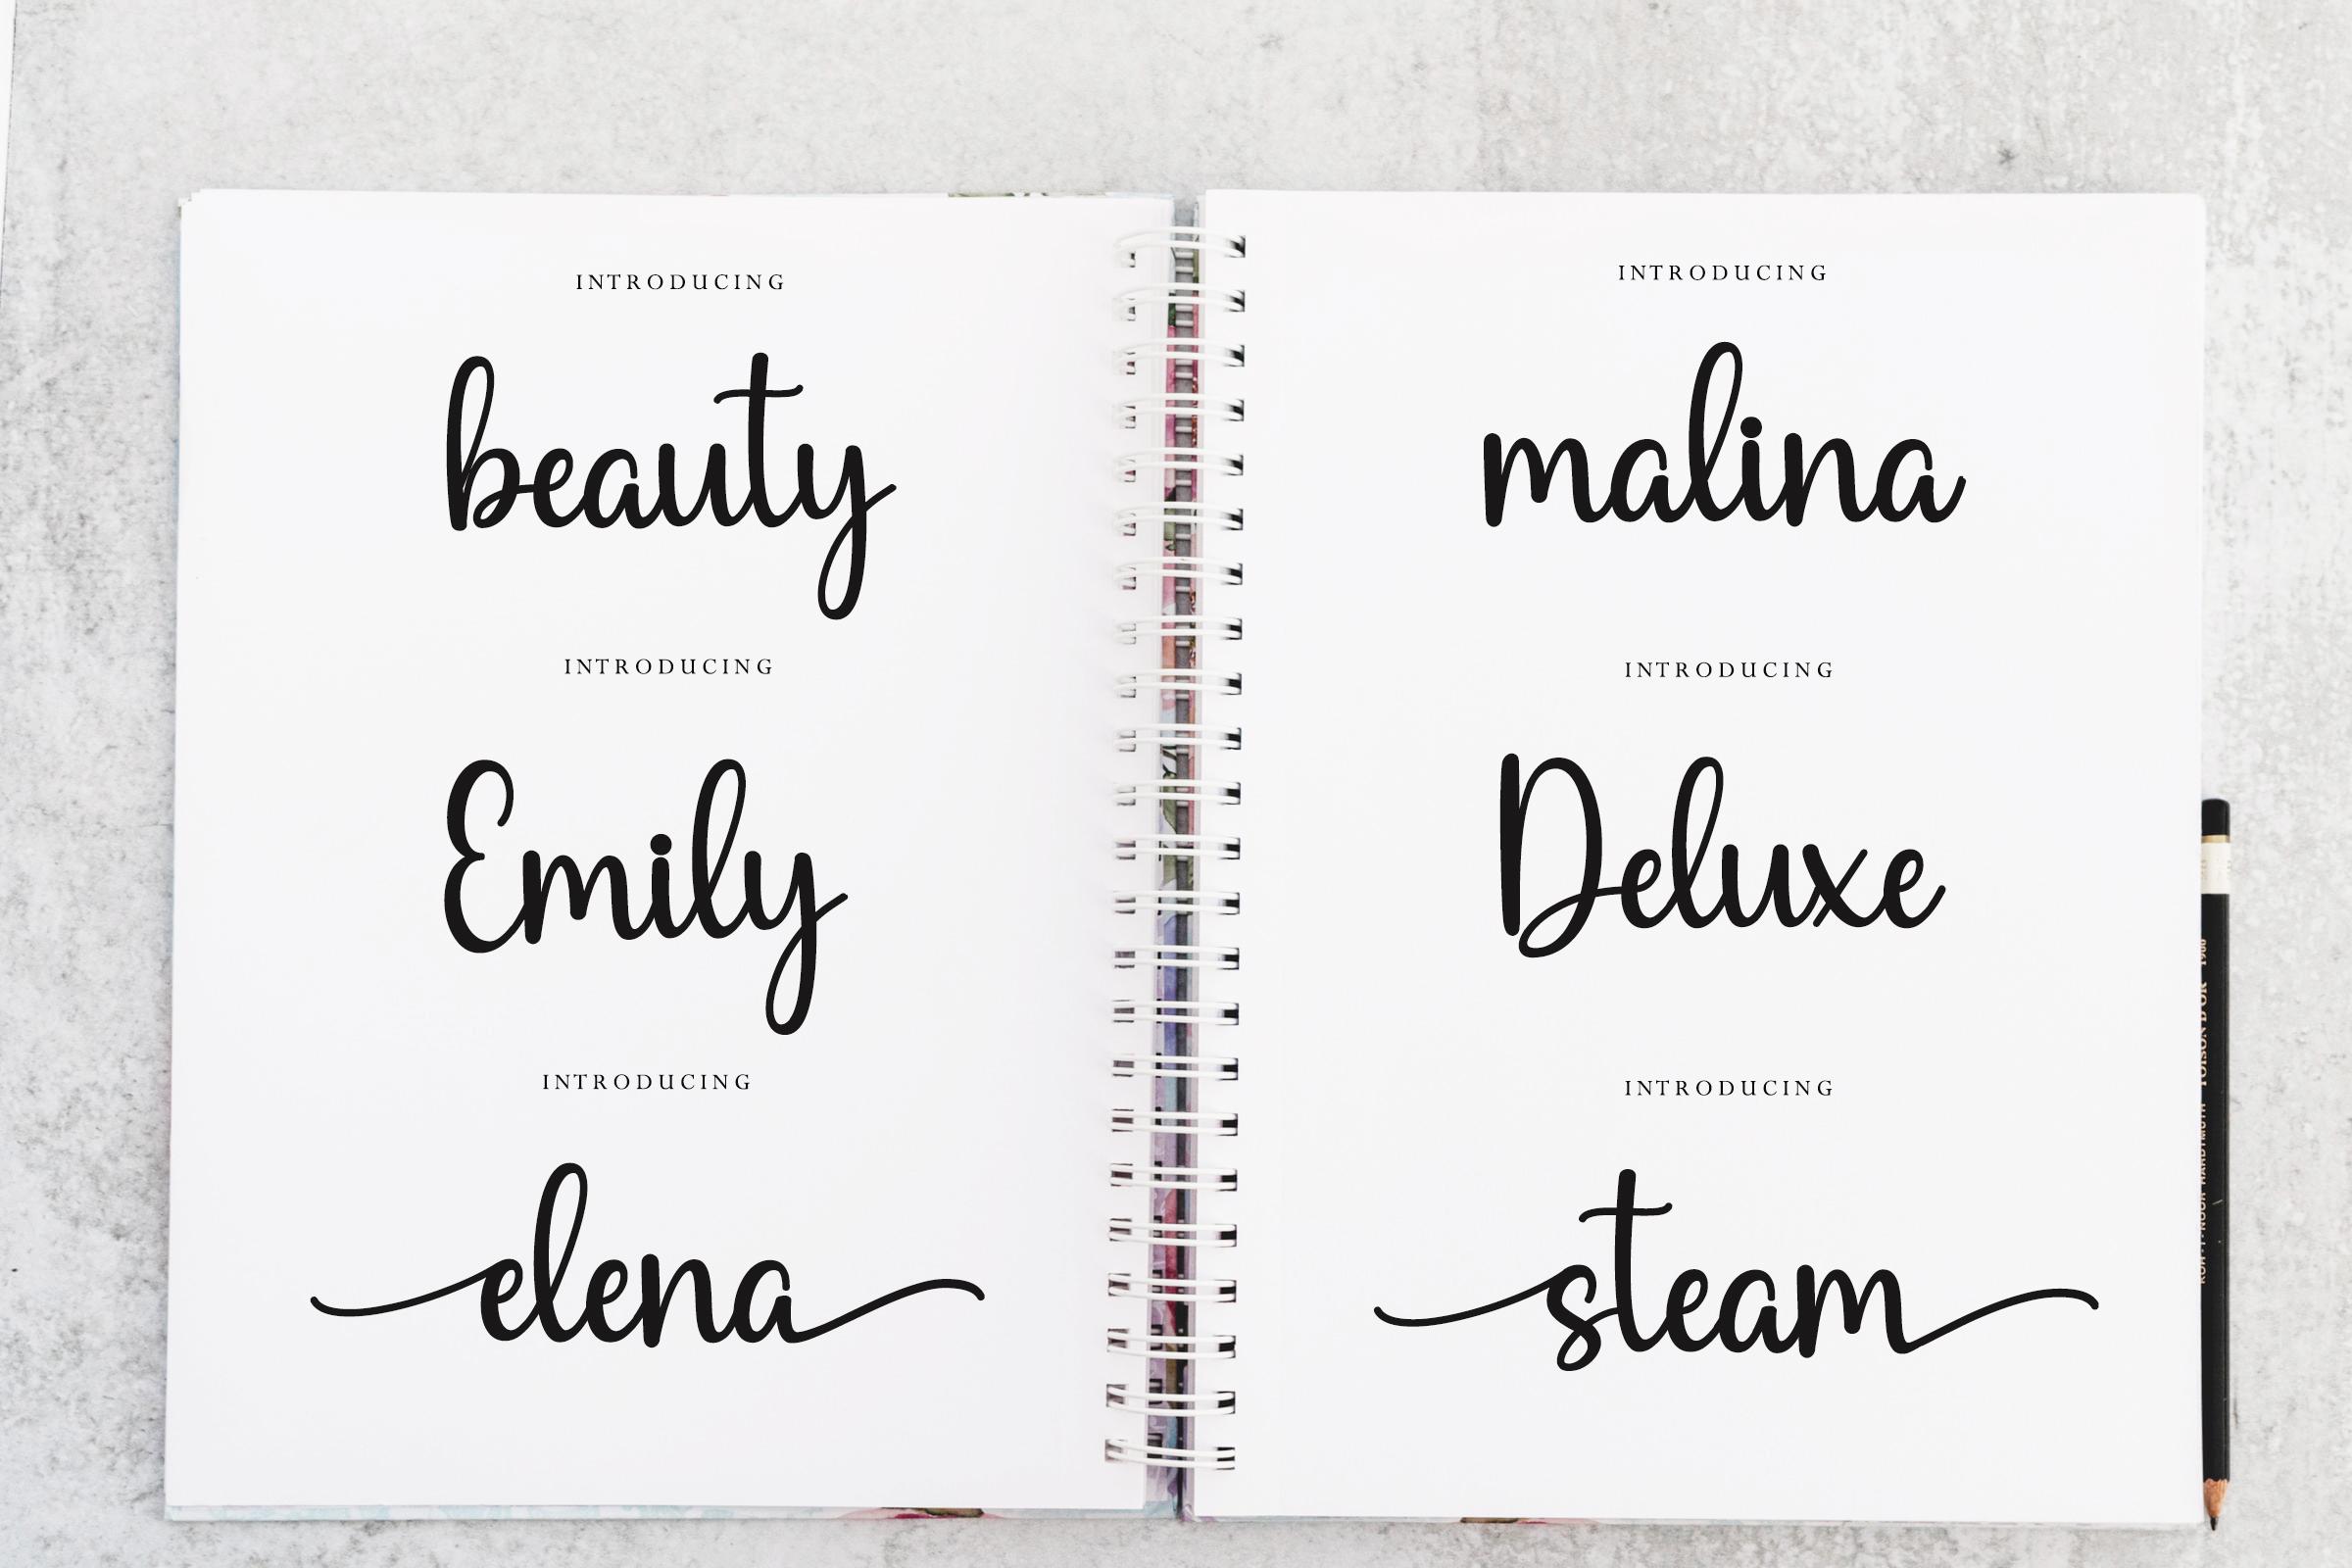 INTRODUCING
beauty
INTRODUCING
Emily
INTRODUCING
elena
INTRODUCING
malina
INTRODUCING
Deluxe
INTRODUCING
steam
KOH-I-NOOR HARDTMUTH TOISON D'OR 1900